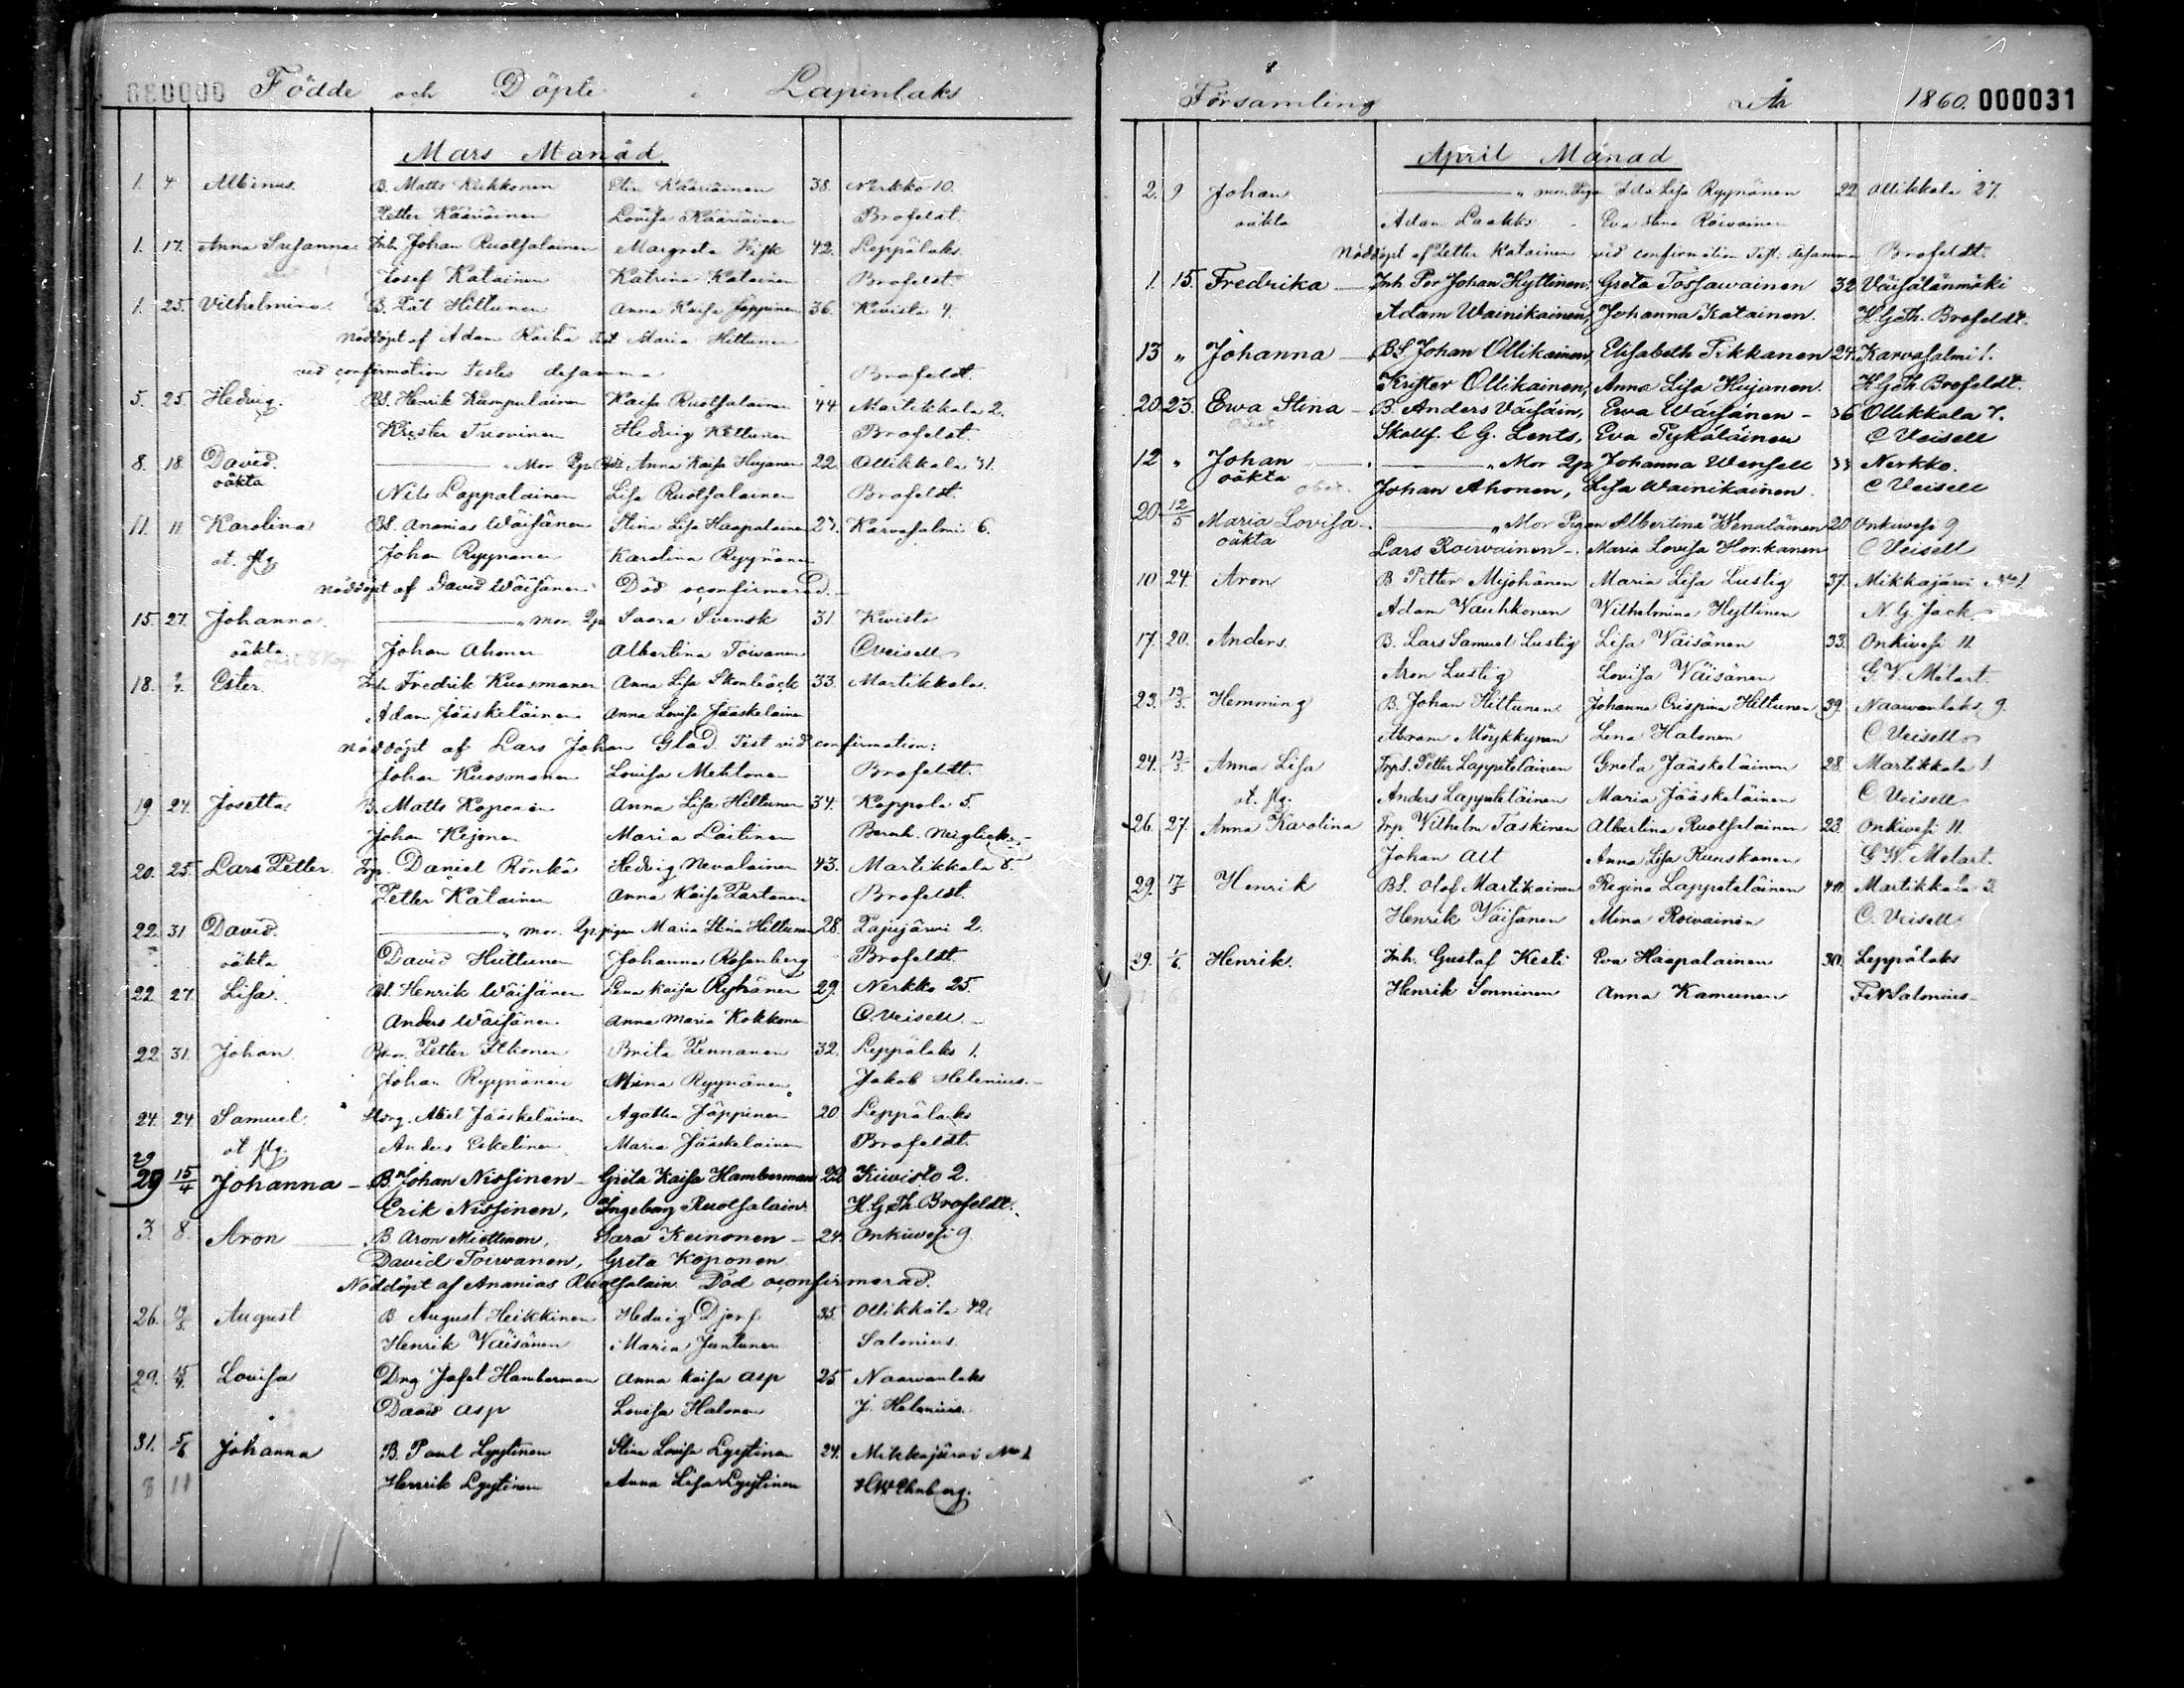 000030 Födde och Döpte i Lapinlaks
Mars Månad.
1. 4 Albinus. B. Matts Kuhkonen Elin Kääriäinen 38. Nerkko 10.
Petter Kääriäinen Lovisa Kääriäinen Brofeldt.
1. 17. Anna Susanna Inh. Johan Ruotsalainen Margreta Fisk 42. Leppälaks
Josef Katainen Katrina Katainen Brofeldt.
1. 25. Vilhelmina. B. Pål Hiltunen Anna Kaisa Jäppinen 36. Kivisto 4.
Nöddöpt af Adam Räihä Test Maria Hiltunen
ved confirmation Testes desamma Brofeldt.
5. 25. Hedvig. BS. Henrik Kumpulainen Kaisa Ruotsalainen 44. Martikkala 2.
Krister Tuovinen Hedvig Kettunen Brofeldt.
8. 18. David. " Mor Anna Kaisa Hujanen 22. Ollikkala 31.
oäkta Nils Lappalainen Lisa Ruotsalainen Brofeldt.
11. 11 Karolina BS. Ananias Wäisänen Stina Lisa Haapalainen 27. Karvasalmi 6.
Johan Ryynänen Karolina Ryynänen
Nöddöpt af David Wäisänen Död oconfirmerad.
15. 27. Johanna. " mor. Saara Svensk 31. Kivisto
oäkta Johan Ahonen Albertina Toivanen C Veisell
18. Ester. Inh Fredrik Kuosmanen Anna Lisa Skonbäck 33. Martikkala.
Adam Jääskeläinen Anna Lovisa Jääskeläinen
nöddöpt af Lars Johan Glad. Test vid confirmation:
Johan Kuosmanen Lovisa Mehtonen Brofeldt.
19. 27. Josetta B. Matts Koponen Anna Lisa Hiltunen 34. Koppola 5.
Johan Kejonen Maria Laitinen Bernh. Neiglick.
20. 25. Lars Petter. Trp. Daniel Rönkä Hedvig Nevalainen 43. Martikkala 8.
Petter Katainen Anna Kaisa Partanen Brofeldt.
22. 31 David. " mor. pigan Maria Stina Hiltunen 28. Pajujärvi 2.
oäkta David Huttunen Johanna Rosenberg Brofeldt.
22 27. Lisa. BS. Henrik Wäisänen Lena Kaisa Ryhänen 29. Nerkko 25.
Anders Wäisänen Anna Maria Kokkonen C. Veisell.
22. 31. Johan. Petter Itkonen Brita Pennanen 32. Leppälaks 1.
Johan Ryynänen Mina Ryynänen Jakob Helenius.
24. 24. Samuel. Abel Jääskeläinen Agatha Jäppinen 20. Leppälaks
Anders Eskelinen Maria Jääskeläinen Brofeldt.
29
29 15/4 Johanna - B. Johan Nissinen - Greta Kaisa Hamberman 22 Kiwisto 2.
Erik Nissinen, Ingeborg Ruotsalain. H. G. Th. Brofeldt.
3. 8. Aron B Aron Miettinen, Sara Keinonen - 24. Onkiwesi 9
David Toivanen, Greta Koponen
Nöddöpt af Ananias Ruotsalain. Död oconfirmerad.
26. August B August Heikkinen Hedvig Djerf 35. Ollikkala 42.
Henrik Väisänen Maria Juntunen Salonius.
29. Lovisa Dng Josef Hamberman Anna Kaisa Asp 25. Naarvanlaks
David Asp Lovisa Halonen J. Helenius.
31. 5/6 Johanna B. Paul Lyytinen Stina Lovisa Lyytinen 24. Mikkajärvi No 1
Henrik Lyytinen Anna Lisa Lyytinen H W Ehnberg.
Församling År 1860. 000031
April Månad
2. 9 Johan " mor. Piga Ida Lisa Ryynänen 22 Ollikkala 27.
oäkta Adam Laakko Eva Stina Roivainen
Nöddöpt af Petter Katainen vid confirmation Test. desamma Brofeldt.
1. 15. Fredrika Inh. Per Johan Hyttinen, Greta Tossawainen 32 Väisälänmäki
Adam Wainikainen, Johanna Katainen. H. G. Th. Brofeldt.
13 " Johanna BS. Johan Ollikainen, Elisabeth Tikkanen 24. Karvasalmi 1.
Krister Ollikainen, Anna Lisa Hujanen. H. G. Th. Brofeldt.
20. 23. Ewa Stina - B. Anders Väisäin, Ewa Wäisänen - 36 Ollikkala 7.
C. G. Lents, Eva Pykäläinen C Veisell
12 " Johan " Mor Johanna Wensell 33 Nerkko.
oäkta Johan Ahonen, Lisa Wainikainen. C Veisell
20 12/5 Maria Lovisa " Mor Pigan Albertina Wenäläinen 20 Onkiwesi 9
oäkta Lars Roivainen -. Maria Lovisa Honkanen C Veisell
10 24. Aron B Petter Myöhänen Maria Lisa Lustig 37. Mikkajärvi No 1.
Adam Vauhkonen Wilhelmina Hyttinen N. G. Jack
17. 20. Anders. B. Lars Samuel Lustig Lisa Väisänen 33. Onkivesi 11.
Aron Lustig Lovisa Väisänen G. W. Molart.
23. 13/5. Hemming B. Johan Hiltunen. Johanna Crispina Hiltunen 39. Naarvanlaks 9.
Abram Möykkynen Lena Halonen C Veisell
24. 13/5 Anna Lisa Trp S. Petter Lappeteläinen Greta Jääskeläinen 28. Martikkala 1.
Anders Lappeteläinen Maria Jääskeläinen C Veisell
26. 27. Anna Karolina Trp Vilhelm Taskinen Albertina Ruotsalainen 23. Onkivesi 11.
Johan Alt Anna Lisa Ruuskanen G. W. Molart.
29. 17/5 Henrik BS. Olof Martikainen Regina Lappeteläinen 40. Martikkala 3.
Henrik Väisänen Mina Roivainen C. Veisell
29. 1/6. Henrik. Inh. Gustaf Kesti Eva Haapalainen 30. Leppälaks
Henrik Sonninen Anna Kamunen Salonius